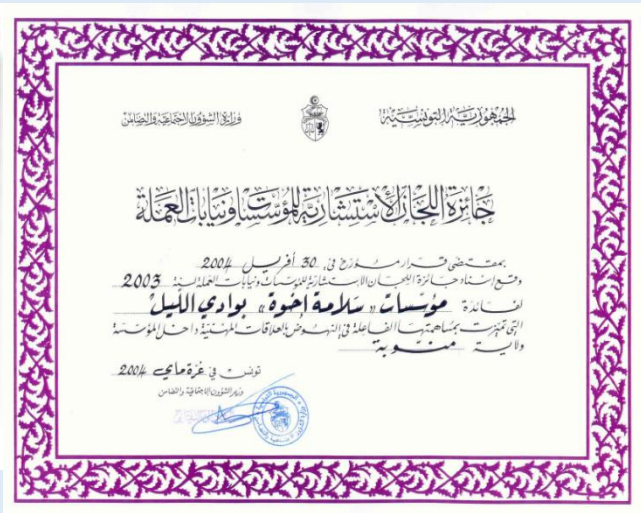 الجمهورية التونسية
وزارة الشؤون الاجتماعية والتضامن
جائزة اللجان الاستشارية للمؤسسات ونيابات العملة
بمقتضى قرار مؤرخ في 30 أفريل 2004
وقع إسناد جائزة اللجان الاستشارية للمؤسسات ونيابات العملة لسنة 2003
لفائدة مؤسسات «سلامة إخوة» بوادي الليل
التي تميزت بمساهمتها الفاعلة في النهوض بالعلاقات المهنية داخل المؤسسة
ولاية منوبة
تونس في غرة ماي 2004
وزير الشؤون الاجتماعية والتضامن